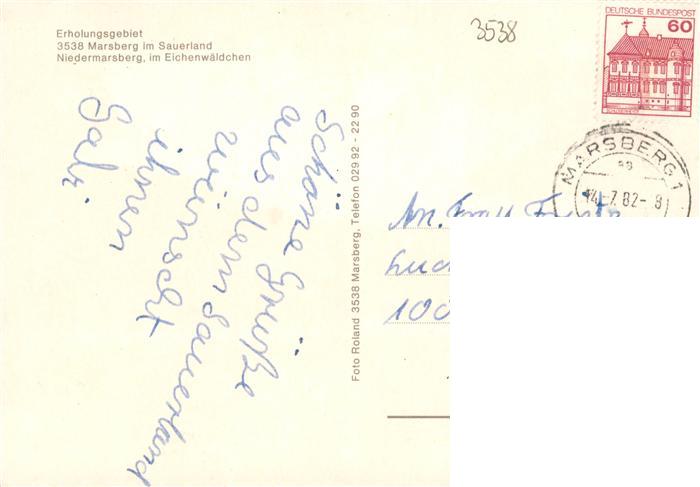 Erholungsgebiet
3538 Marsberg im Sauerland
Niedermarsberg, im Eichenwäldchen
3538
DEUTSCHE BUNDESPOST
60
MARSBERG 1
14.-7.82-8
Schöne Grüße
aus dem Sauerland
wünscht
ihnen
Foto Roland 3538 Marsberg, Telefon 02992 - 2290
An
100